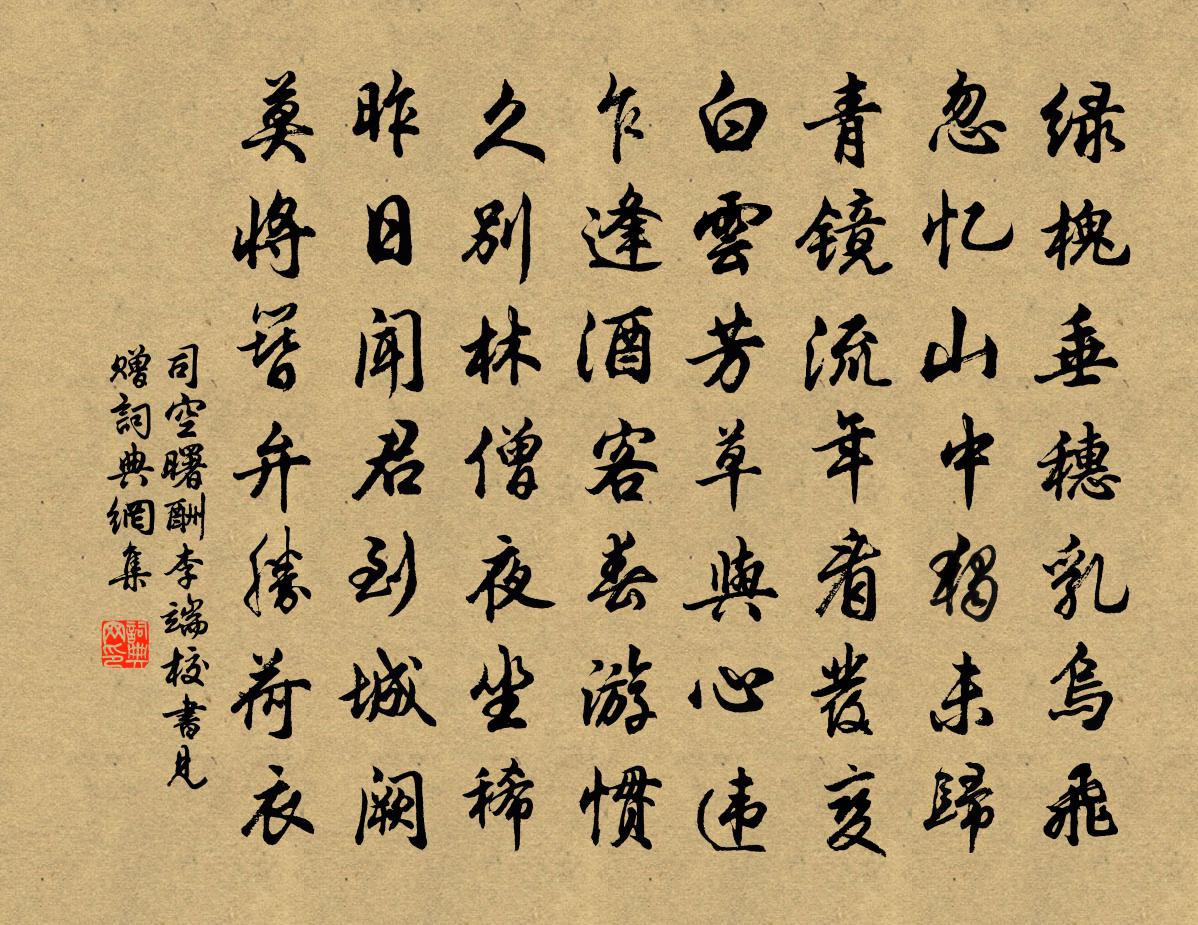 绿槐垂穗乳乌飞
忽忆山中独未歸
青镜流年看發变
白雲芳草與心违
乍逢酒客春游慣
久别林僧夜坐稀
昨日闻君到城阙
莫将簪弁勝荷衣
司空曙酬李端校書見
赠詞典網集
詞典网印